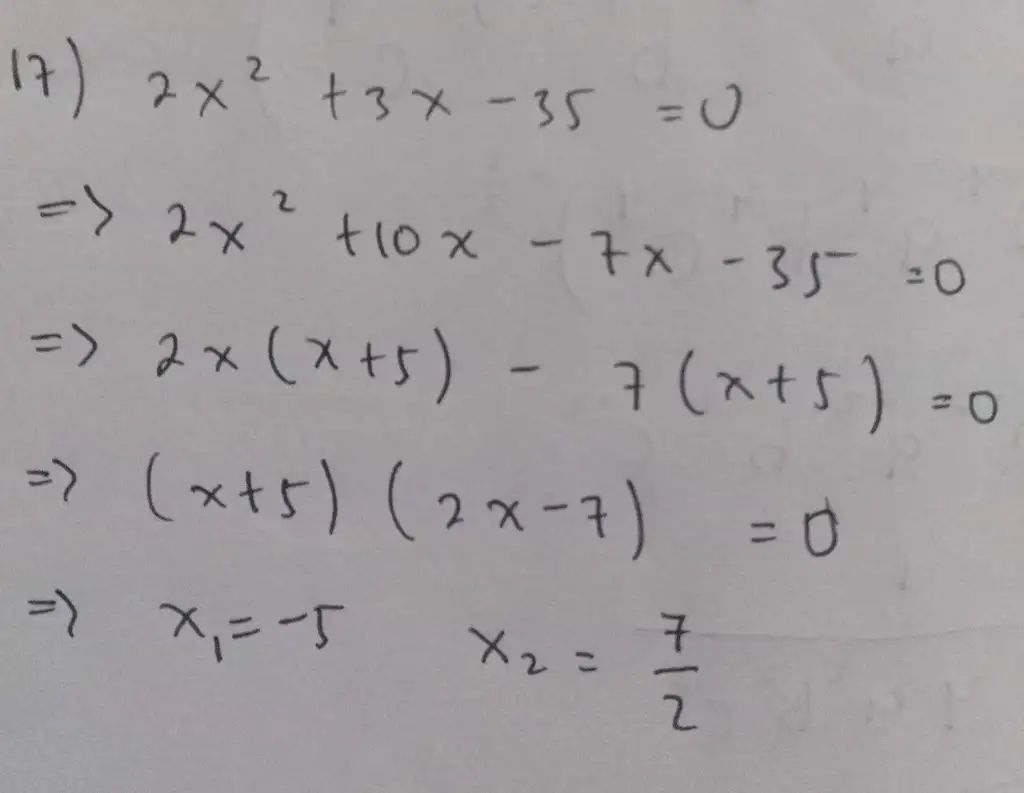 17) 2x² +3x -35 =0
=> 2x² +10x - 7x -35 =0
=> 2x(x+5) - 7(x+5) =0
=> (x+5) (2x-7) =0
=> x₁=-5 x₂ = 7/2